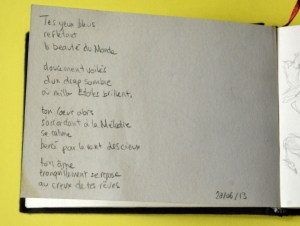 Tes yeux bleus
reflètent
la beauté du Monde
doucement voilés
d'un drap sombre
où mille étoiles brillent,
ton cœur alors
s'accordant à la Mélodie
se calme
bercé par le vent des cieux
ton âme
tranquillement se repose
au creux de tes rêves